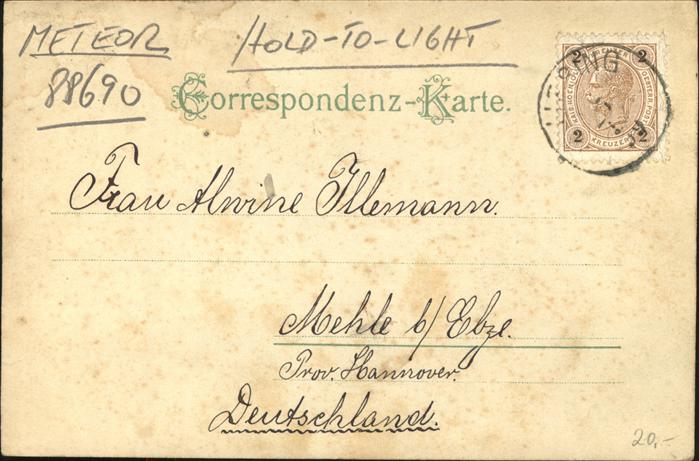 METEOR HOLD-TO-LIGHT
88690
Correspondenz-Karte.
2 2
2 KREUZER 2
Frau Alwine Illemann.
Mehle b/ Ebze.
Prov. Hannover.
Deutschland.
20,-